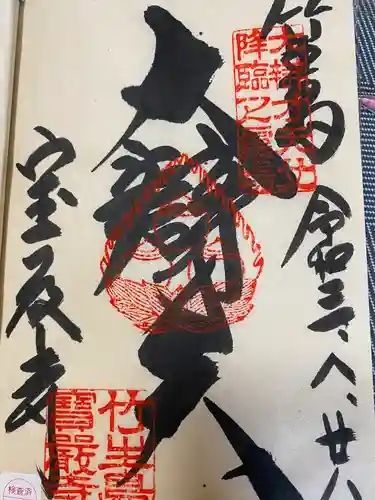 竹生島
令和三、八、廿八
大辯才天
大辯才天
降臨之霊山
宝厳寺
竹生島
寶嚴寺
検査済